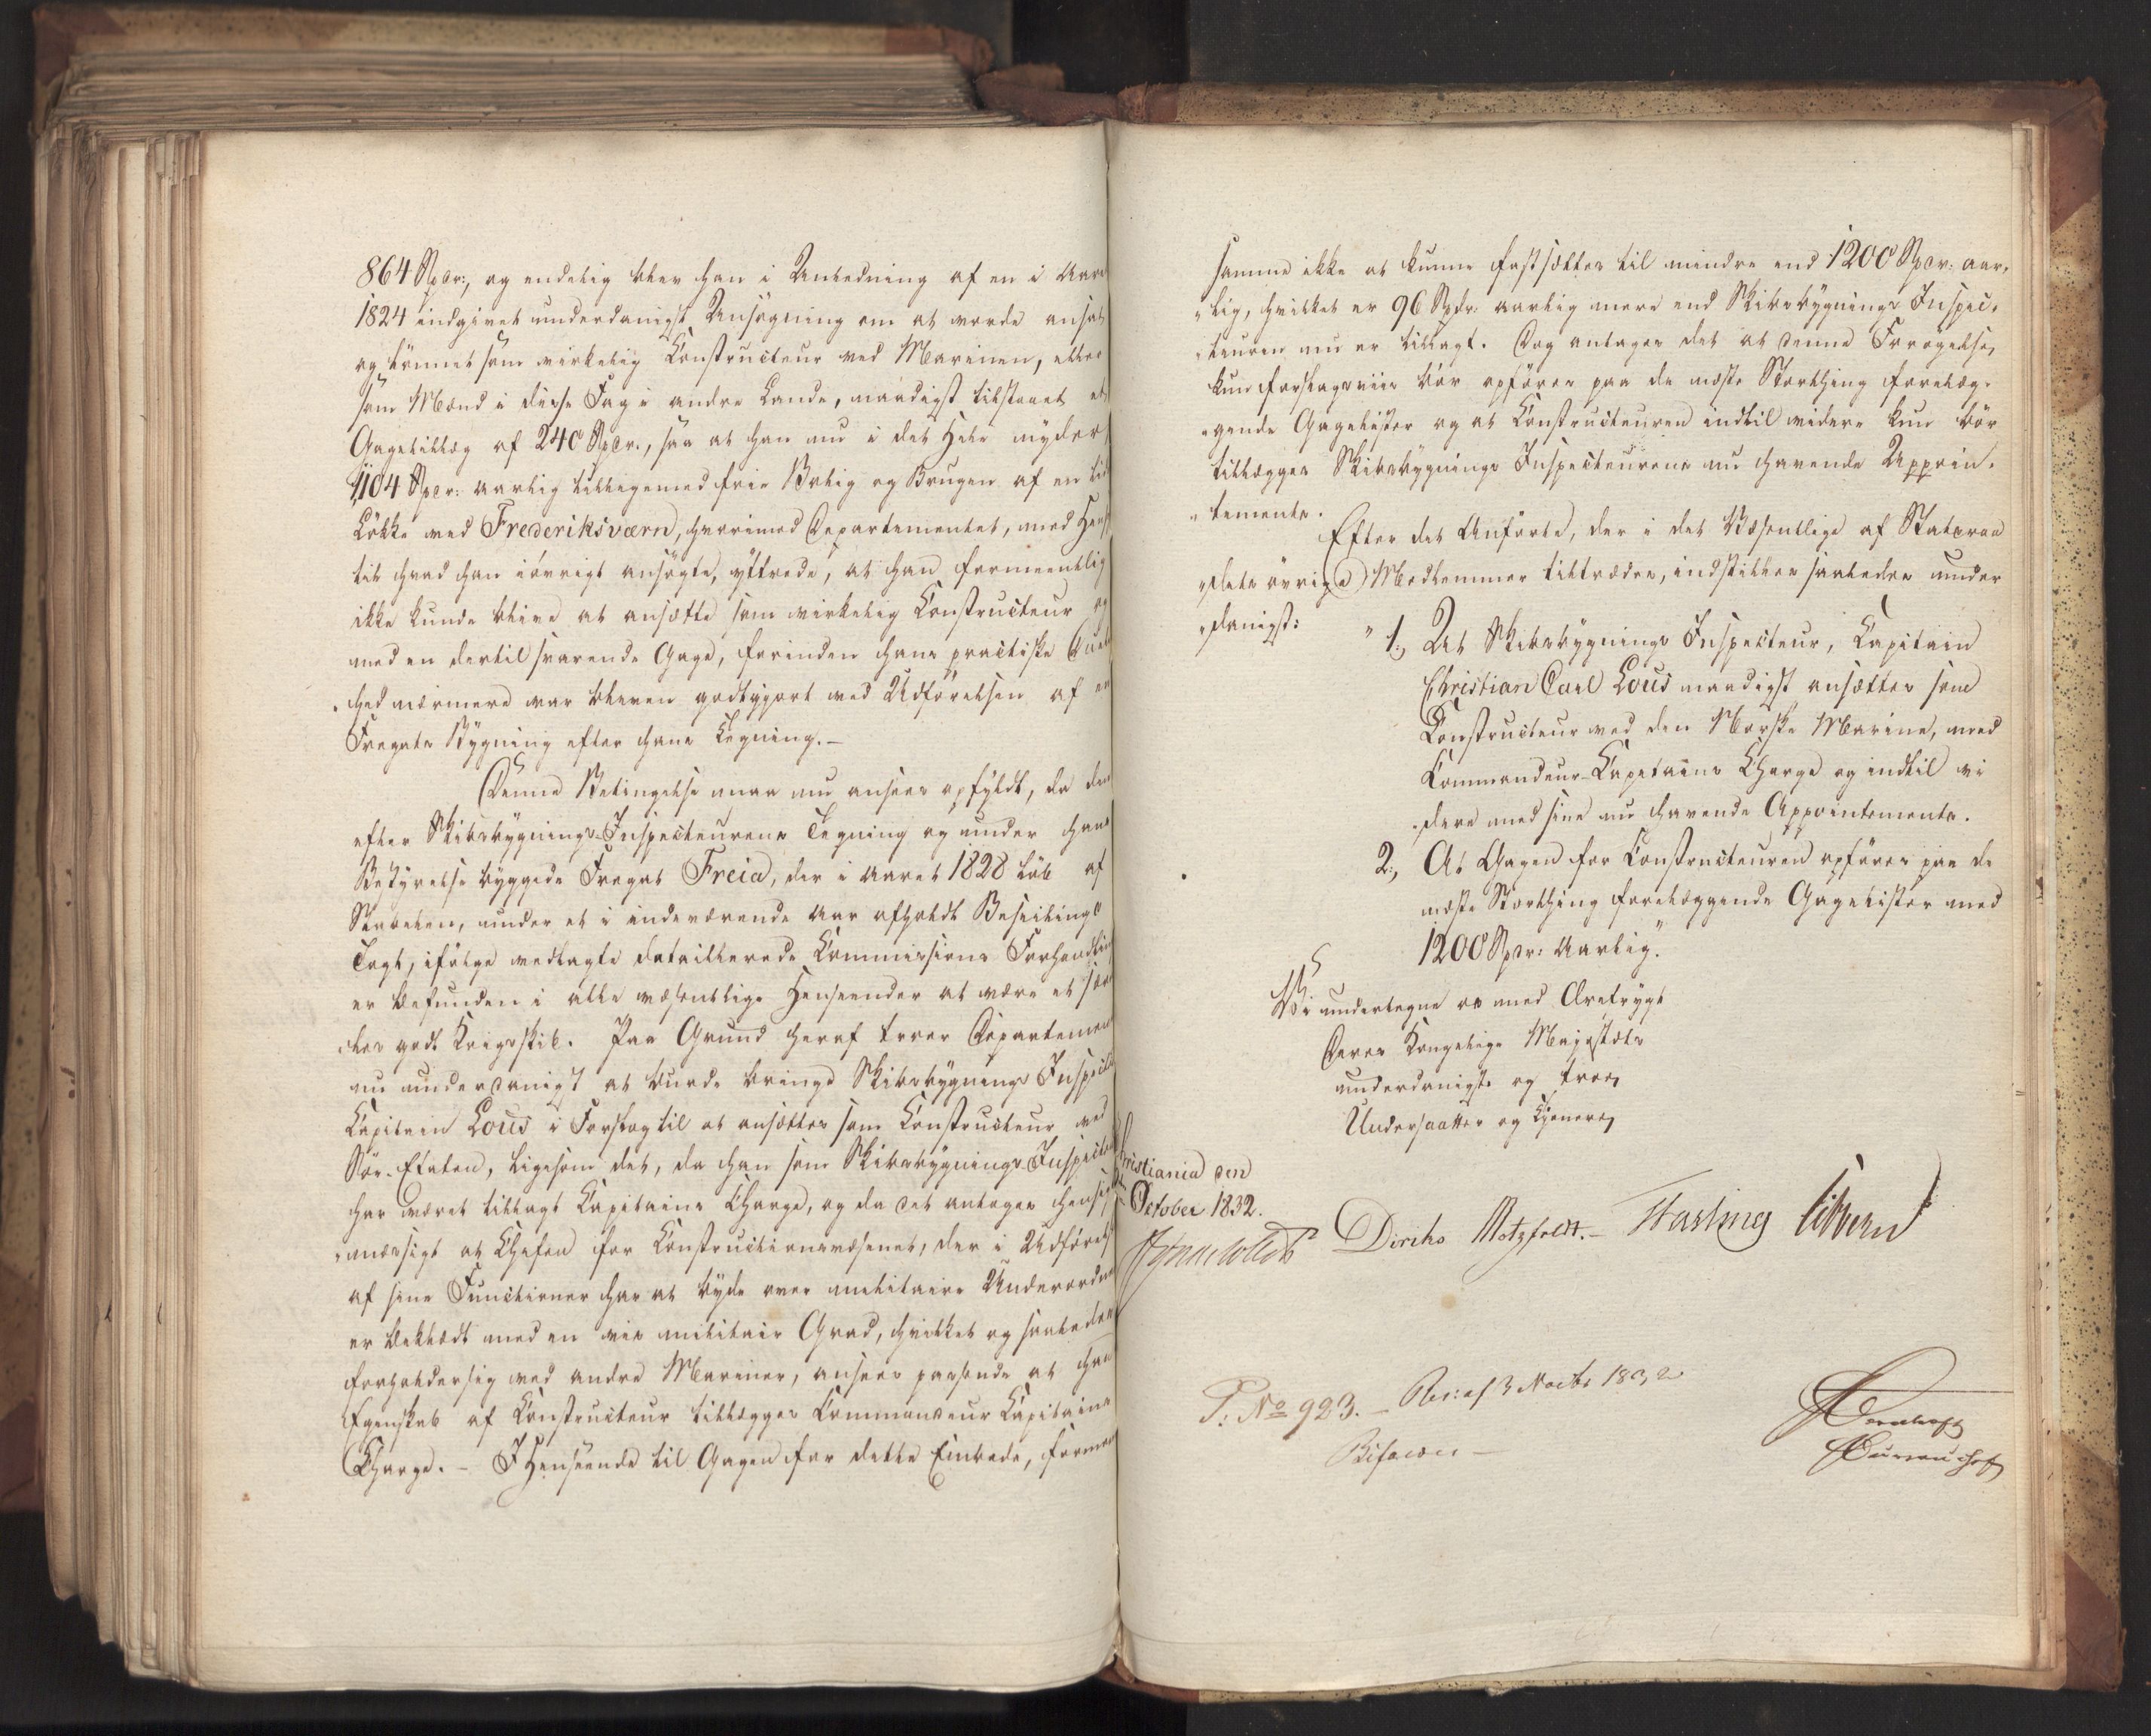 864 Spdr:, og endelig blev han i Anledning af en i Aaret
1824 indgivet underdanigst Ansögning om at worde ansat
og lönnet som virkelig Constructeur ved Marinen, eller
som Mænd i disse Fag i andre Lande, naadigst tilstaaet et
Gagetillæg af 240 Spdr., saa at han nu i det Hele nyder
1104 Spdr: aarlig tilligemed frie Bolig og Brugen af en
Lökke ved Frederiksværn, hvorimod Departementet, med
til hvad han iövrigt ansögte, yttrede, at han formeentlig
ikke kunde blive at ansætte som virkelig Constructeur og
med en dertil svarende Gage, forinden hans practiske
hed nærmere var bleven godtgjort ved Udförelsen af en
Fregats Bygning efter hans Tegning.-
Denne Betingelse maa nu ansees opfyldt, da den
efter Skibsbygnings-Inspecteurens Tegning og under hans
Bestyrelse byggede Fregat Freia, der i Aaret 1828 löb af
Stabelen, under et i indeværende Aar afholdt Beseilings
Togt, ifölge vedlagte detaillerede Commissions Forhandling
er befunden i alle væsentlige Henseender at være et sær
"deles godt Krigsskib. Paa Grund heraf troer Departementet
nu underdanigst at burde bringe Skibsbygnings Inspecteur
Capitain Lous i Forslag til at ansættes som Constructeur ved
Söe-Etaten, ligesom det, da han som Skibsbygnings-Inspecteur
har været tillagt Capitains Charge, og da det antages hensigts
"mæssigt at Chefen for Constructionsvæsenet, der i Udförelsen
af sine Functioner har at byde over militaire Underordnede
er beklædt med en vis militair Grad, hvilket og saaledes
forholder sig ved andre Mariner, ansees passende at han
Egenskab af Constructeur tillægges Commandeur Capitains
Charge.- I Henseende til Gagen for dette Embede, formenes
samme ikke at kunne fastsættes til mindre end 1200 Spdr: aar,
"lig, hvilket er 96 Spdr: aarlig mere end Skibsbygnings Inspec,
"teuren nu er tillagt. Dog antages det at denne Forögelse
kun forslagsviis bör opföres paa de næste Storthing forelæg,
"gende Gagelister og at Constructeuren indtil videre kun bör
tillægges Skibsbygnings Inspecteurens nu havende Appoin,
"tements.
Efter det Anförte, der i det Væsentlige af Statsraa
"dets övrige Medlemmer tiltrædes, indstilles saaledes under
"danigst:
"1., At Skibsbygnings Inspecteur, Capitain
Christian Carl Lous naadigst ansættes som
Constructeur ved den Norske Marine, med
Commandeur-Capitains Charge og indtil vi
"dere med sine nu havende Appointements.
2., At Gagen for Constructeuren opföres paa de
næste Storthing forelæggende Gagelister med
1200 Spdr: Aarlig."
Vi undertegne os med Ærefrygt
Deres Kongelige Majestæts
underdanigste og troe
Undersaatter og Tjenere
Christiania den
October 1832.
Diriks Motzfeldt.- Fasting Sibbern
P: No 923. - Res: af 3 Novbr 1832
Bifaldes -